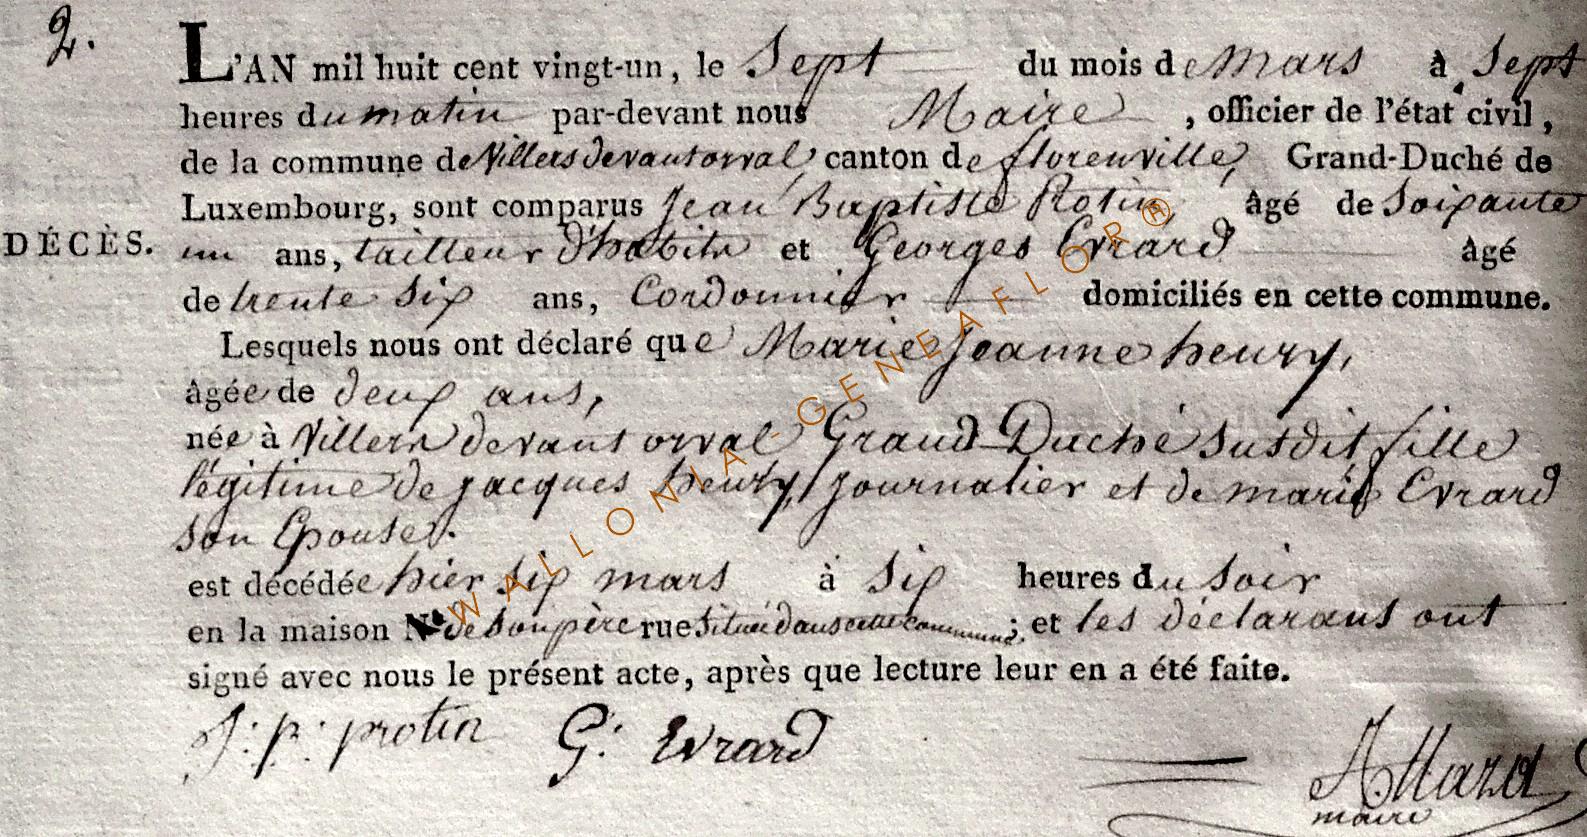 2.
L'AN mil huit cent vingt-un, le Sept du mois de Mars à Sept
heures du matin par-devant nous Maire, officier de l'état civil,
de la commune de Villers devant orval, canton de florenville, Grand-Duché de
Luxembourg, sont comparus Jean Baptiste Rotin, âgé de Soixante
DÉCÈS.
un ans, tailleur d'habits et Georges Evrard âgé
de trente Six ans, Cordonnier domiciliés en cette commune.
Lesquels nous ont déclaré que Marie Jeanne henry,
âgée de deux ans,
née à Villers devant orval Grand Duché susdit fille
légitime de jacques henry, journalier et de marie Evrard
son Epouse.
est décédée hier six mars à six heures du soir
en la maison N° de son père rue située dans cette commune; et les déclarans ont
signé avec nous le présent acte, après que lecture leur en a été faite.
J: p: protin G: Evrard
maire
WALLONIA - GENEAFLOR®